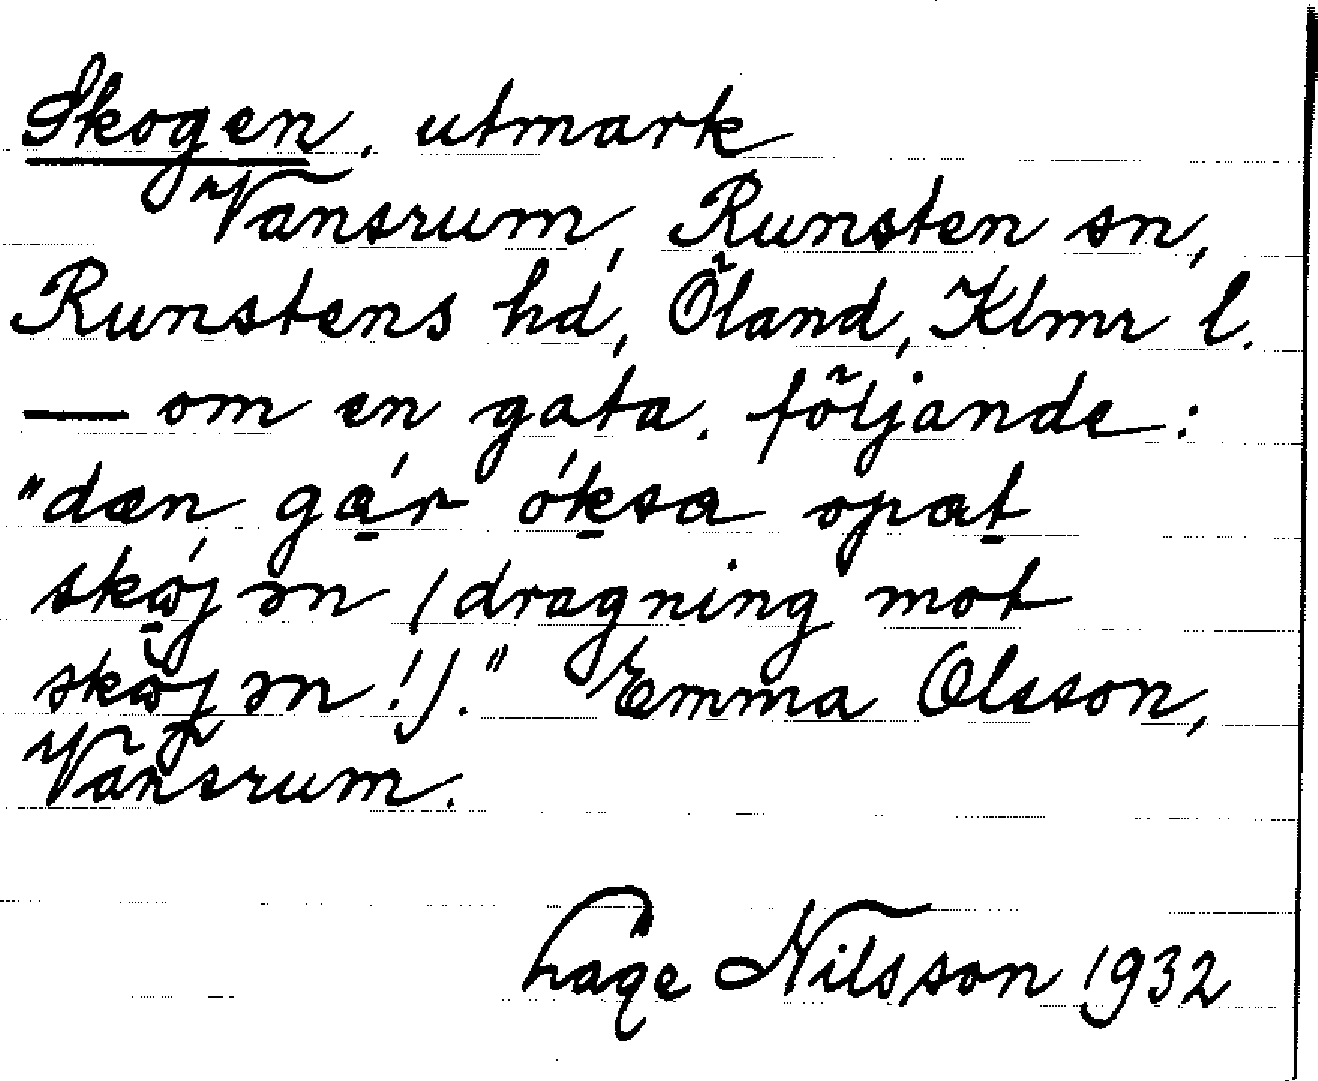 Skogen, utmark
Vansrum, Runsten sn,
Runstens hd, Öland, Klmr l.
— om en gata, följande:
"dæn gár óksa opat
skǿjən (dragning mot
skøjən!)." Emma Olsson,
Vansrum.
Lage Nilsson 1932